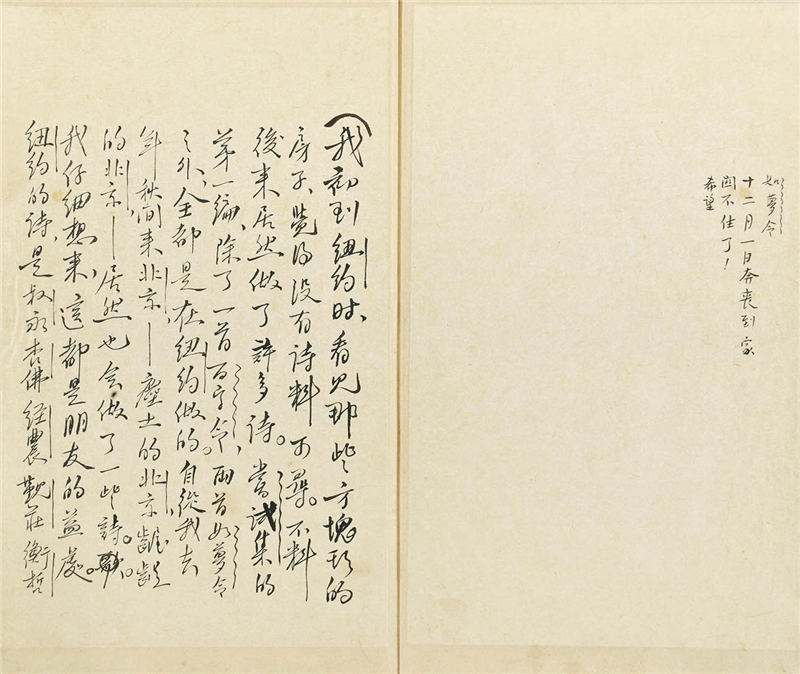 如夢令
十二月一日奔喪到家
關不住了!
希望
(我初到紐約時,看見那些方塊形的
房子,覺得沒有詩料可尋。不料
後來居然做了許多詩。嘗試集的
第一編,除了一首百字令,兩首如夢令
之外,全都是在紐約做的。自從我去
年秋間來北京—塵土的北京,齷齪
的北京—居然也會做了一些詩。
我仔細想來,這都是朋友的益處。
紐約的詩,是叔永杏佛經農覲莊衡哲